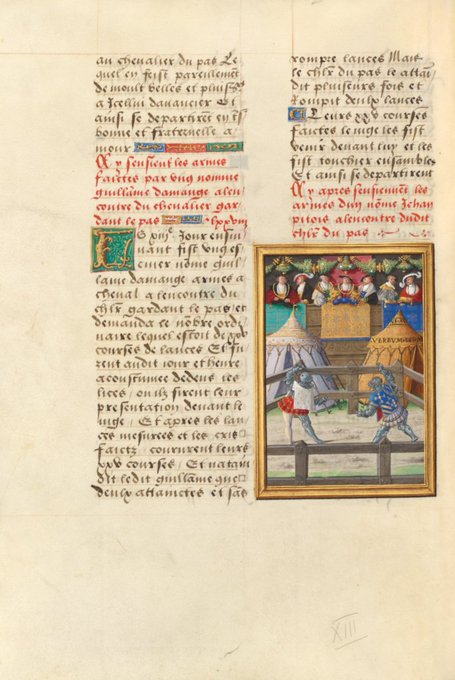 au chevalier du pas Le
quel en feist pareillement
de moult belles et plus
a Icelluy davancier Et
ainsi se departirent en
bonne et fraternelle a
mour
Cy sensient les armes
faictes par ung nomme
guillame damange alen
contre du chevalier gar
dant le pas lxxviij
Jour ensui
vant fist ung es
cuier nome guil
lame damange armes a
cheval a lencontre du
chlr gardant le pas et
demanda le nobre ordi
naire lequel estoit de xxv
courses de lances Et fu
rent audit Jour et heure
acoustumee dedens les
lices ou ilz firent leur
presentation devant le
iuge Et apres les lan
ces mesurees et les cris
faictz coururent leurs
xxv courses Et natain
dit ledit guillame que
deulx attainctes et sans
rompre lances Mais
le chlr du pas le attai
dit plusieurs fois et
Rompit deulx lances
Leurs xxv courses
faictes le iuge les fist
venir devant luy et les
fist toucher ensambles
Et ainsi se departirent
Cy apres sensieuvent les
armes dun nome Jehan
pitois alencontre dudit
chlr du pas
VERBUM
XIII